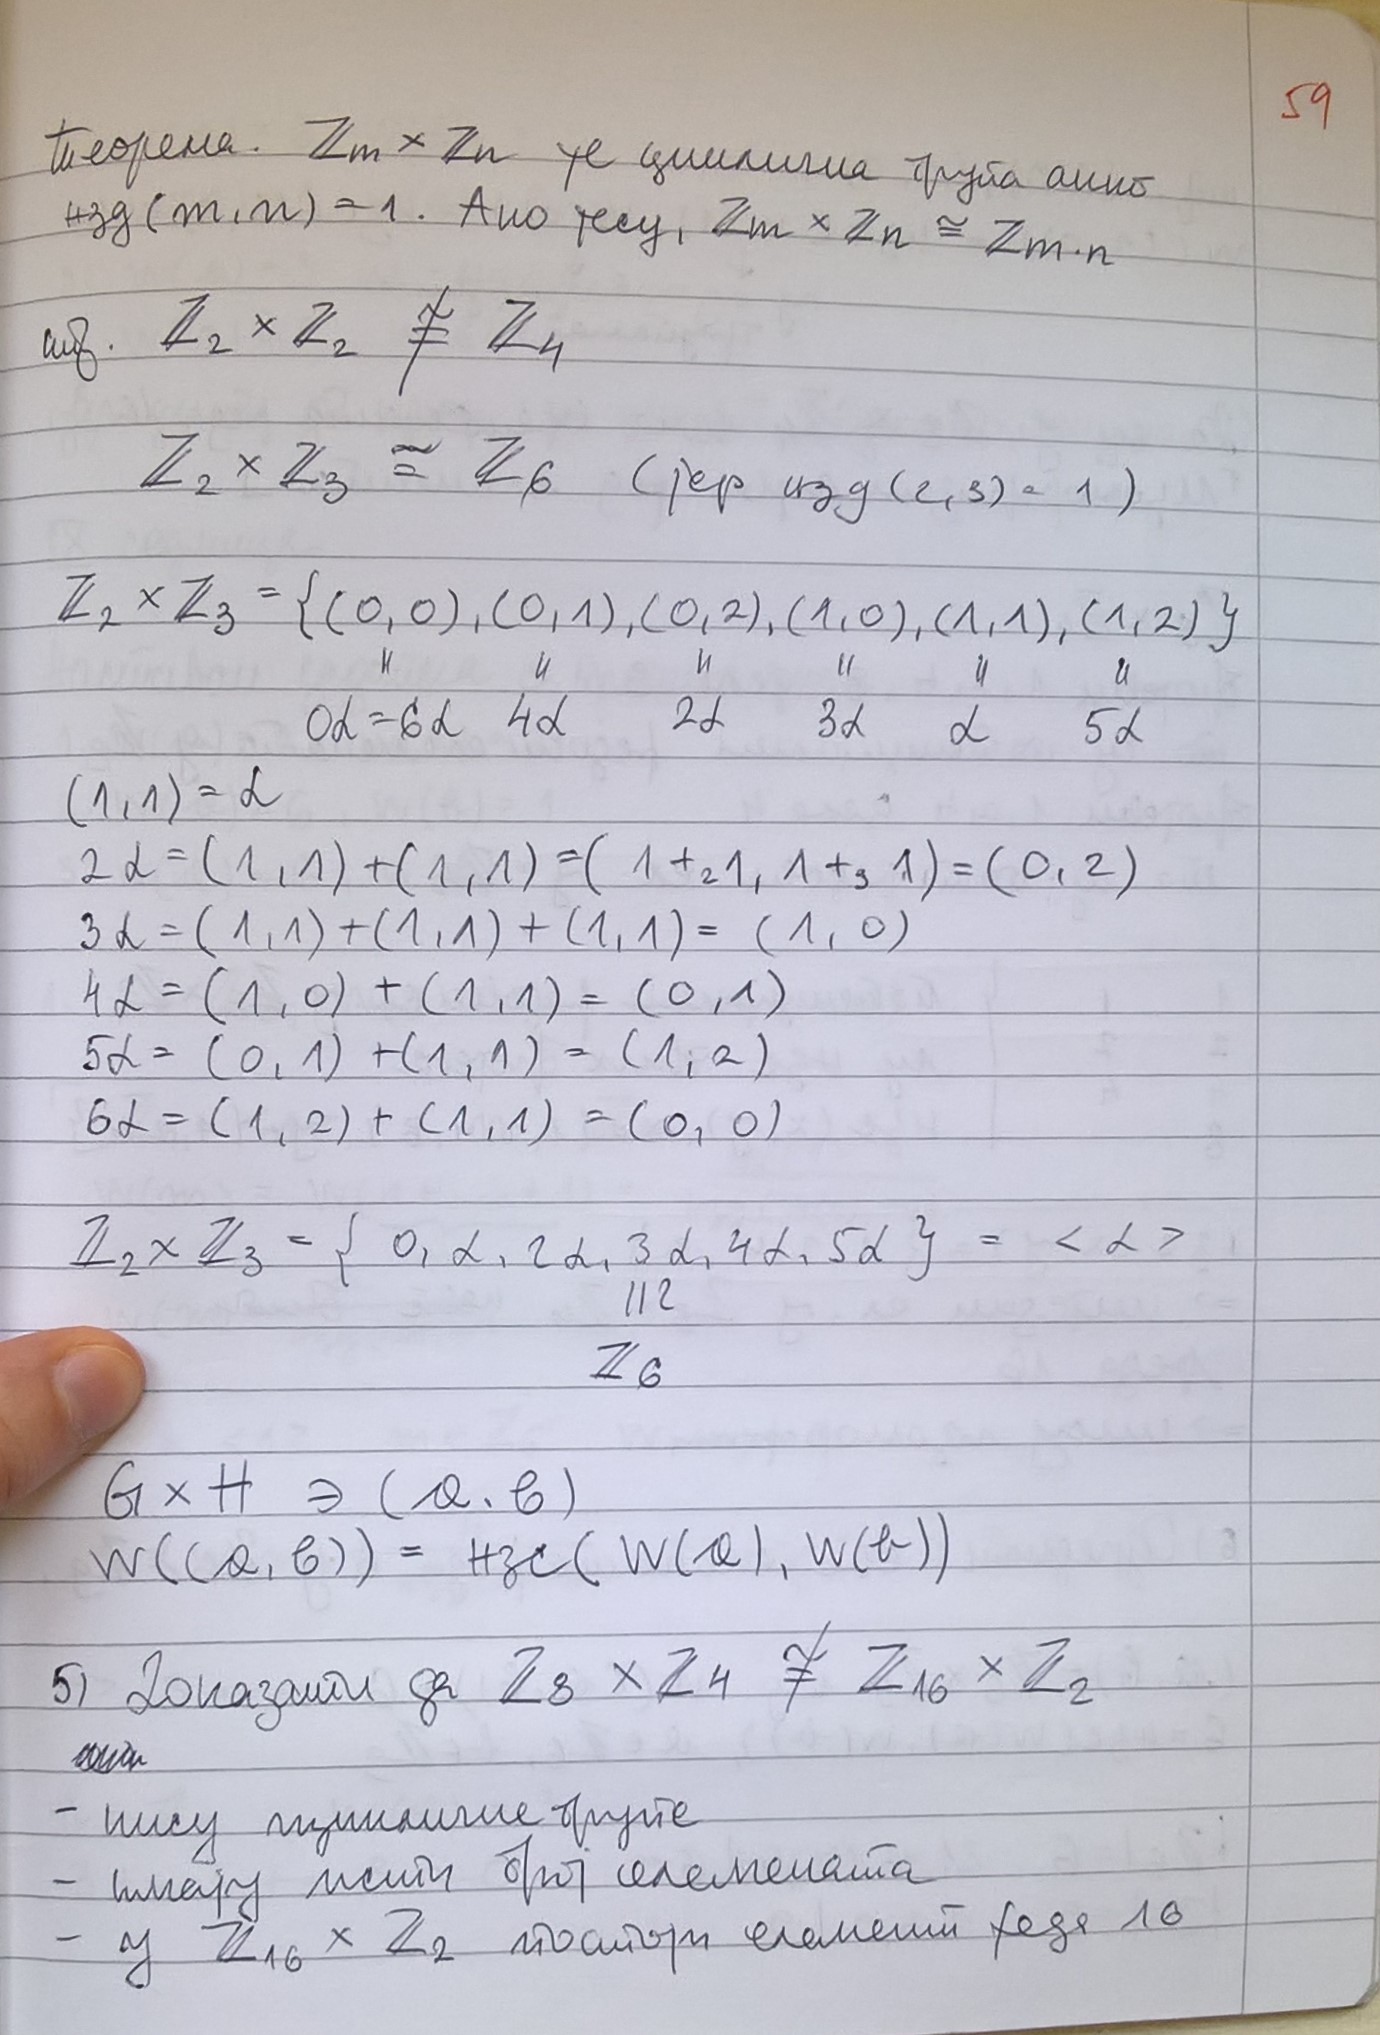 59
Теорема. ℤm × ℤn је циклична група акко
нзд(m,n) = 1. Ако јесу, ℤm × ℤn ≅ ℤm·n
ℤ2 × ℤ2 ≇ ℤ4
ℤ2 × ℤ3 ≅ ℤ6 (јер нзд(2,3) = 1)
ℤ2 × ℤ3 = {(0,0), (0,1), (0,2), (1,0), (1,1), (1,2)}
" " " " " "
0α=6α 4α 2α 3α α 5α
(1,1) = α
2α = (1,1) + (1,1) = (1 +2 1, 1 +3 1) = (0,2)
3α = (1,1) + (1,1) + (1,1) = (1,0)
4α = (1,0) + (1,1) = (0,1)
5α = (0,1) + (1,1) = (1,2)
6α = (1,2) + (1,1) = (0,0)
ℤ2 × ℤ3 = { 0, α, 2α, 3α, 4α, 5α } = < α >
≀||
ℤ6
G × H ∋ (a,b)
W((a,b)) = нзс(W(a), W(b))
5) Доказати да ℤ8 × ℤ4 ≇ ℤ16 × ℤ2
- нису цикличне групе
- имају исти број елемената
- у ℤ16 × ℤ2 постоји елемент реда 16